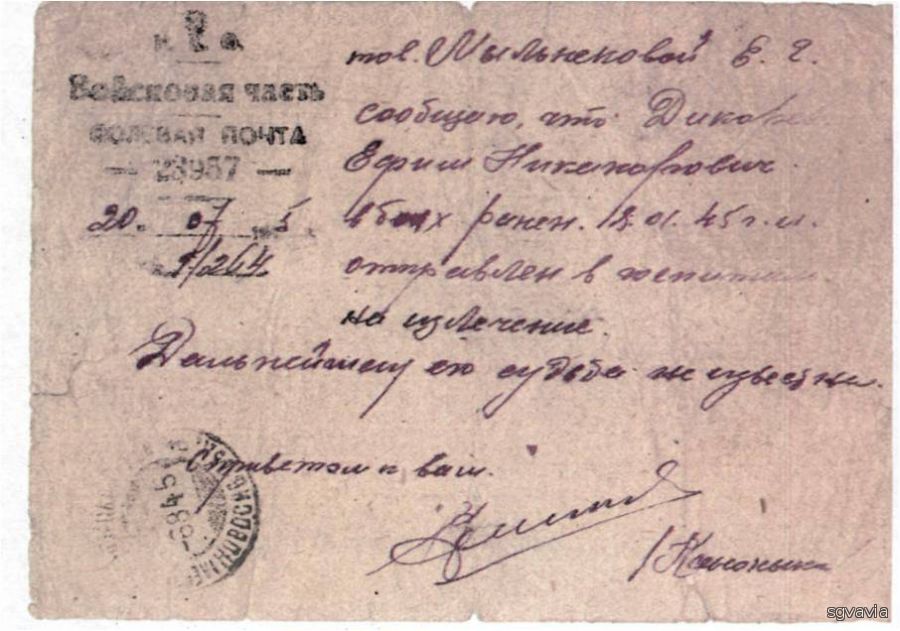 Войсковая часть
ПОЛЕВАЯ ПОЧТА
— 28957 —
20. 07 5
1/264
тов. Мыльнековой Е. Г.
сообщаю, что Диков
Ефим Никанорович
в боях ранен. 18.01.45 г. и
отправлен в
на излечение.
Дальнейшая его судьба не известна.
С приветом к вам.
sgvavia